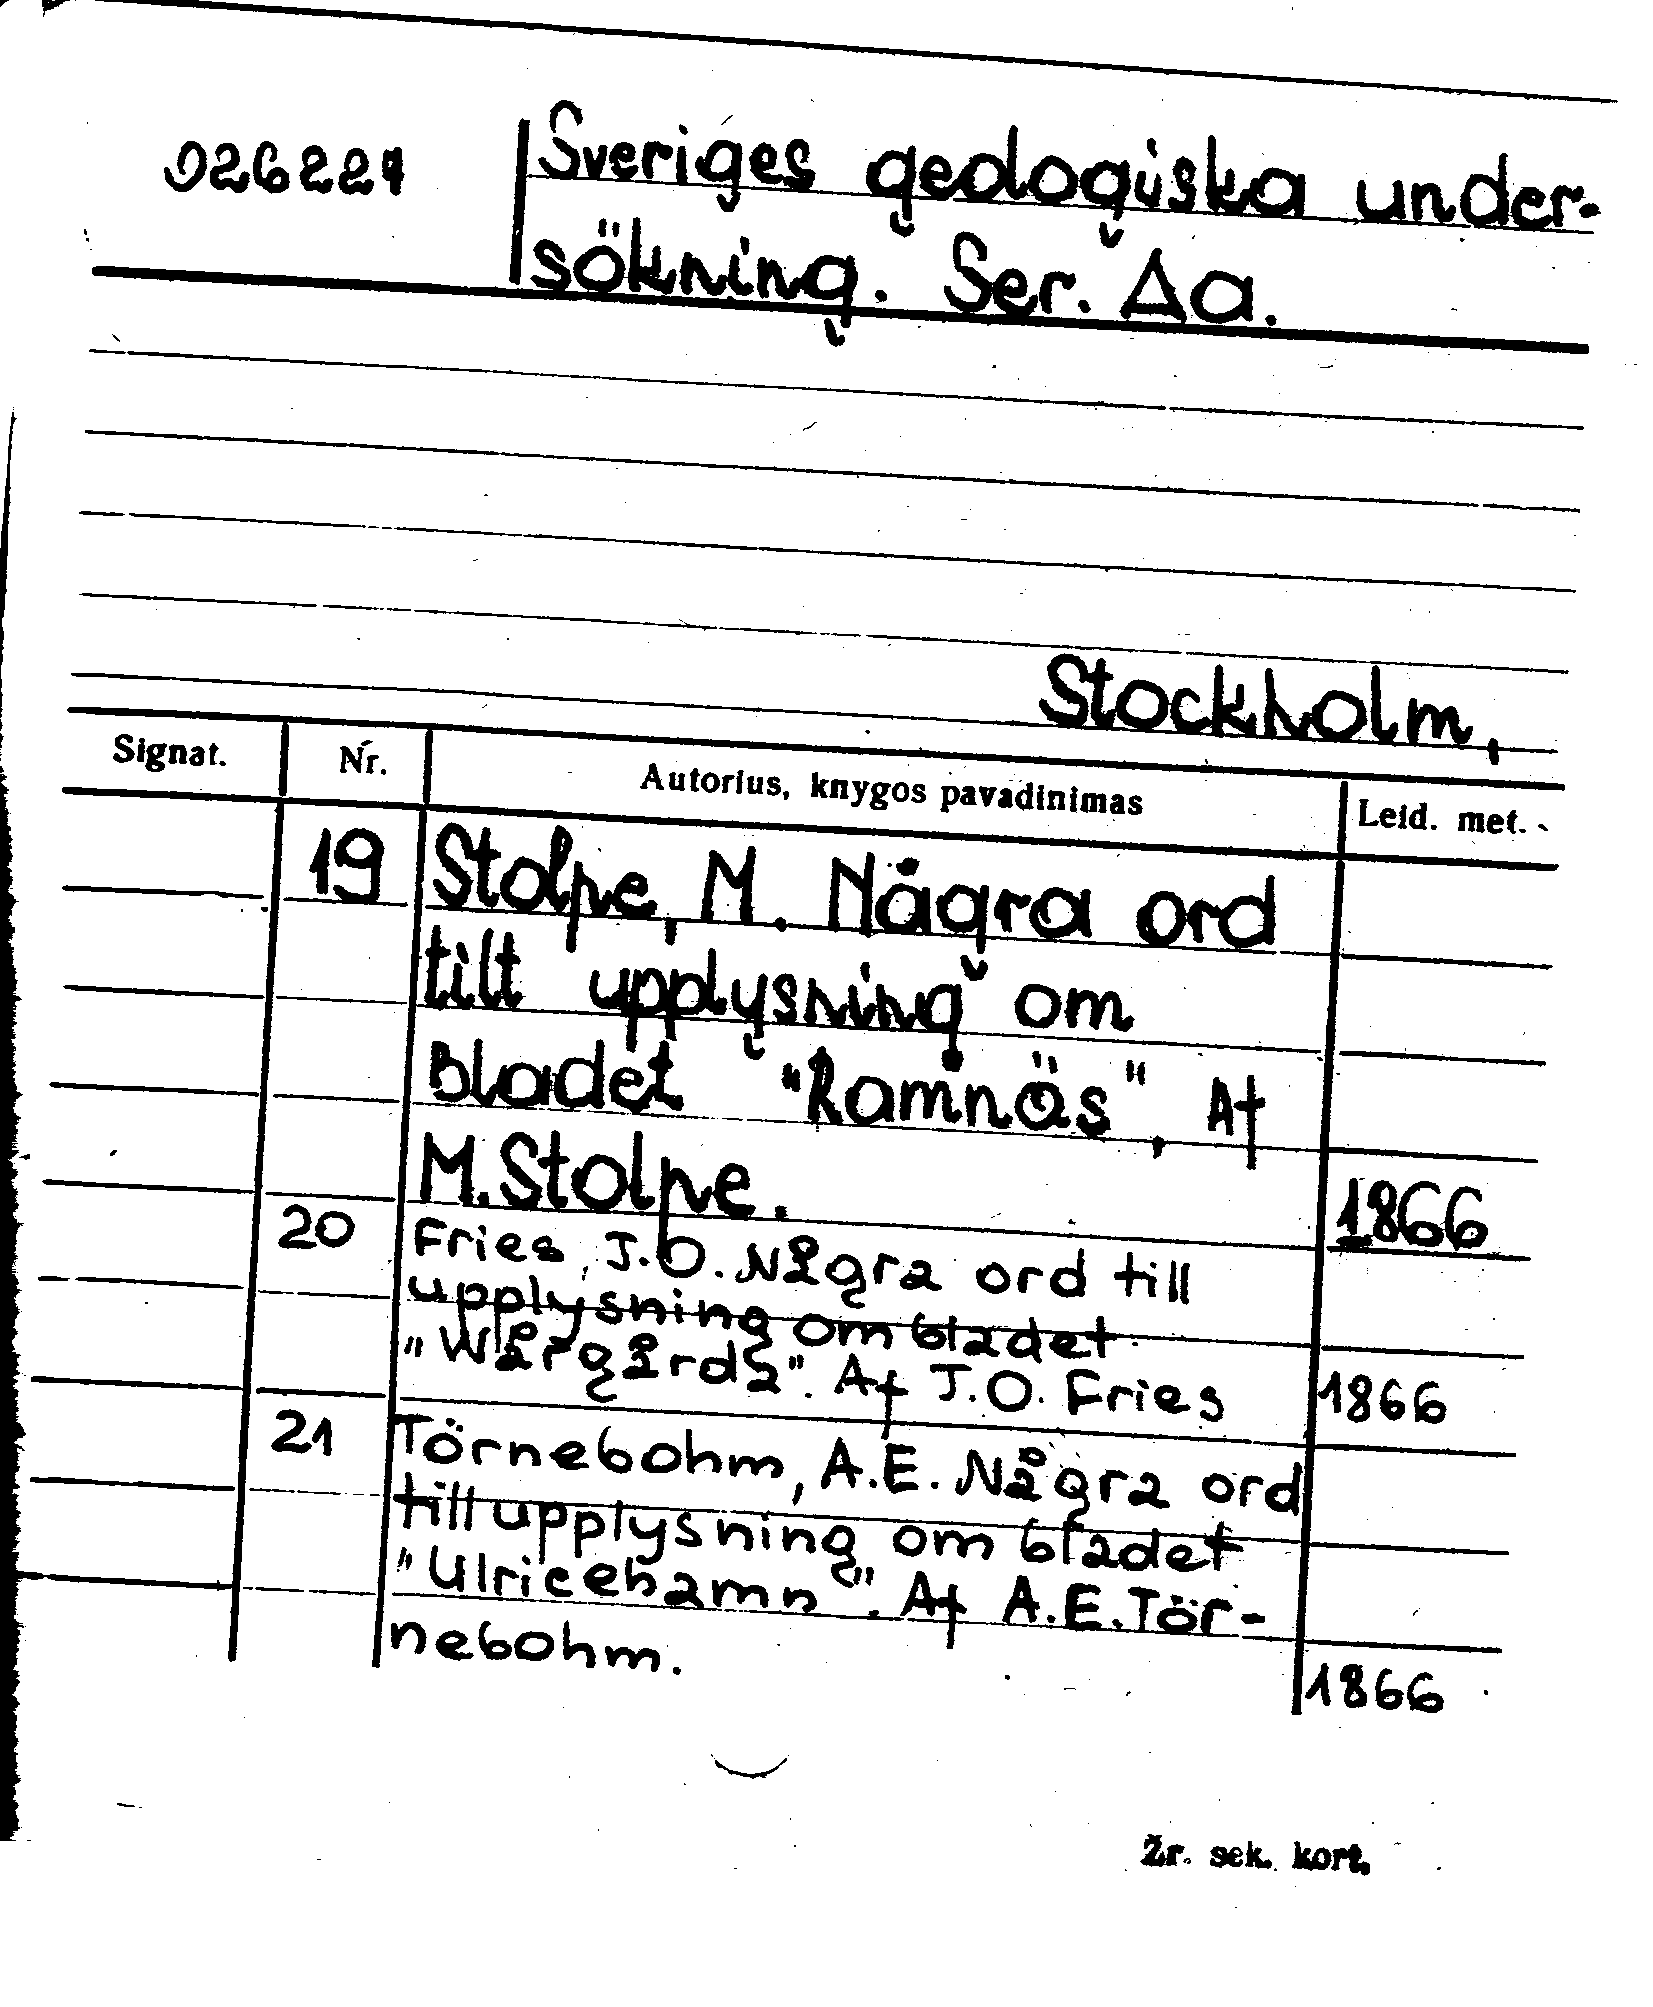 926224 Sveriges geologiska under-
sökning. Ser. Aa.
Stockholm,
Signat. Nr. Autorius, knygos pavadinimas Leid. met.
19 Stolpe, M. Några ord
tilt upplysning om
Bladet "Ramnäs", Af
M. Stolpe. 1866
20 Fries, J.O. Några ord till
upplysning om bladet
"Wårgårda". Af J.O. Fries 1866
21 Törnebohm, A.E. Några ord
till upplysning om bladet
"Ulricehamn". Af A.E. Tör-
nebohm. 1866
Žr. sek. kort.